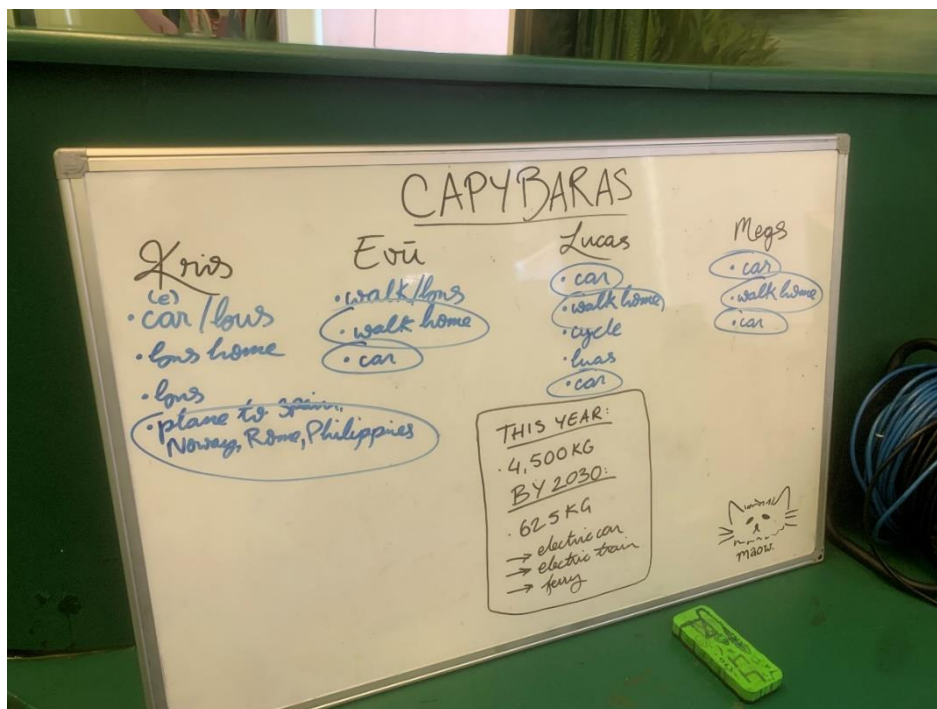 CAPYBARAS
Kris
(e)
• car/bus
• bus home
• bus
• plane to Spain,
Noway, Rome, Philippies
Evū
• walk/bus
• walk home
• car
Lucas
• car
• walk home,
• cycle
• luas
• car
Megs
• car
• walk home
• car
THIS YEAR:
• 4,500KG
BY 2030:
• 625KG
→ electric car
→ electric train
→ ferry
maow.